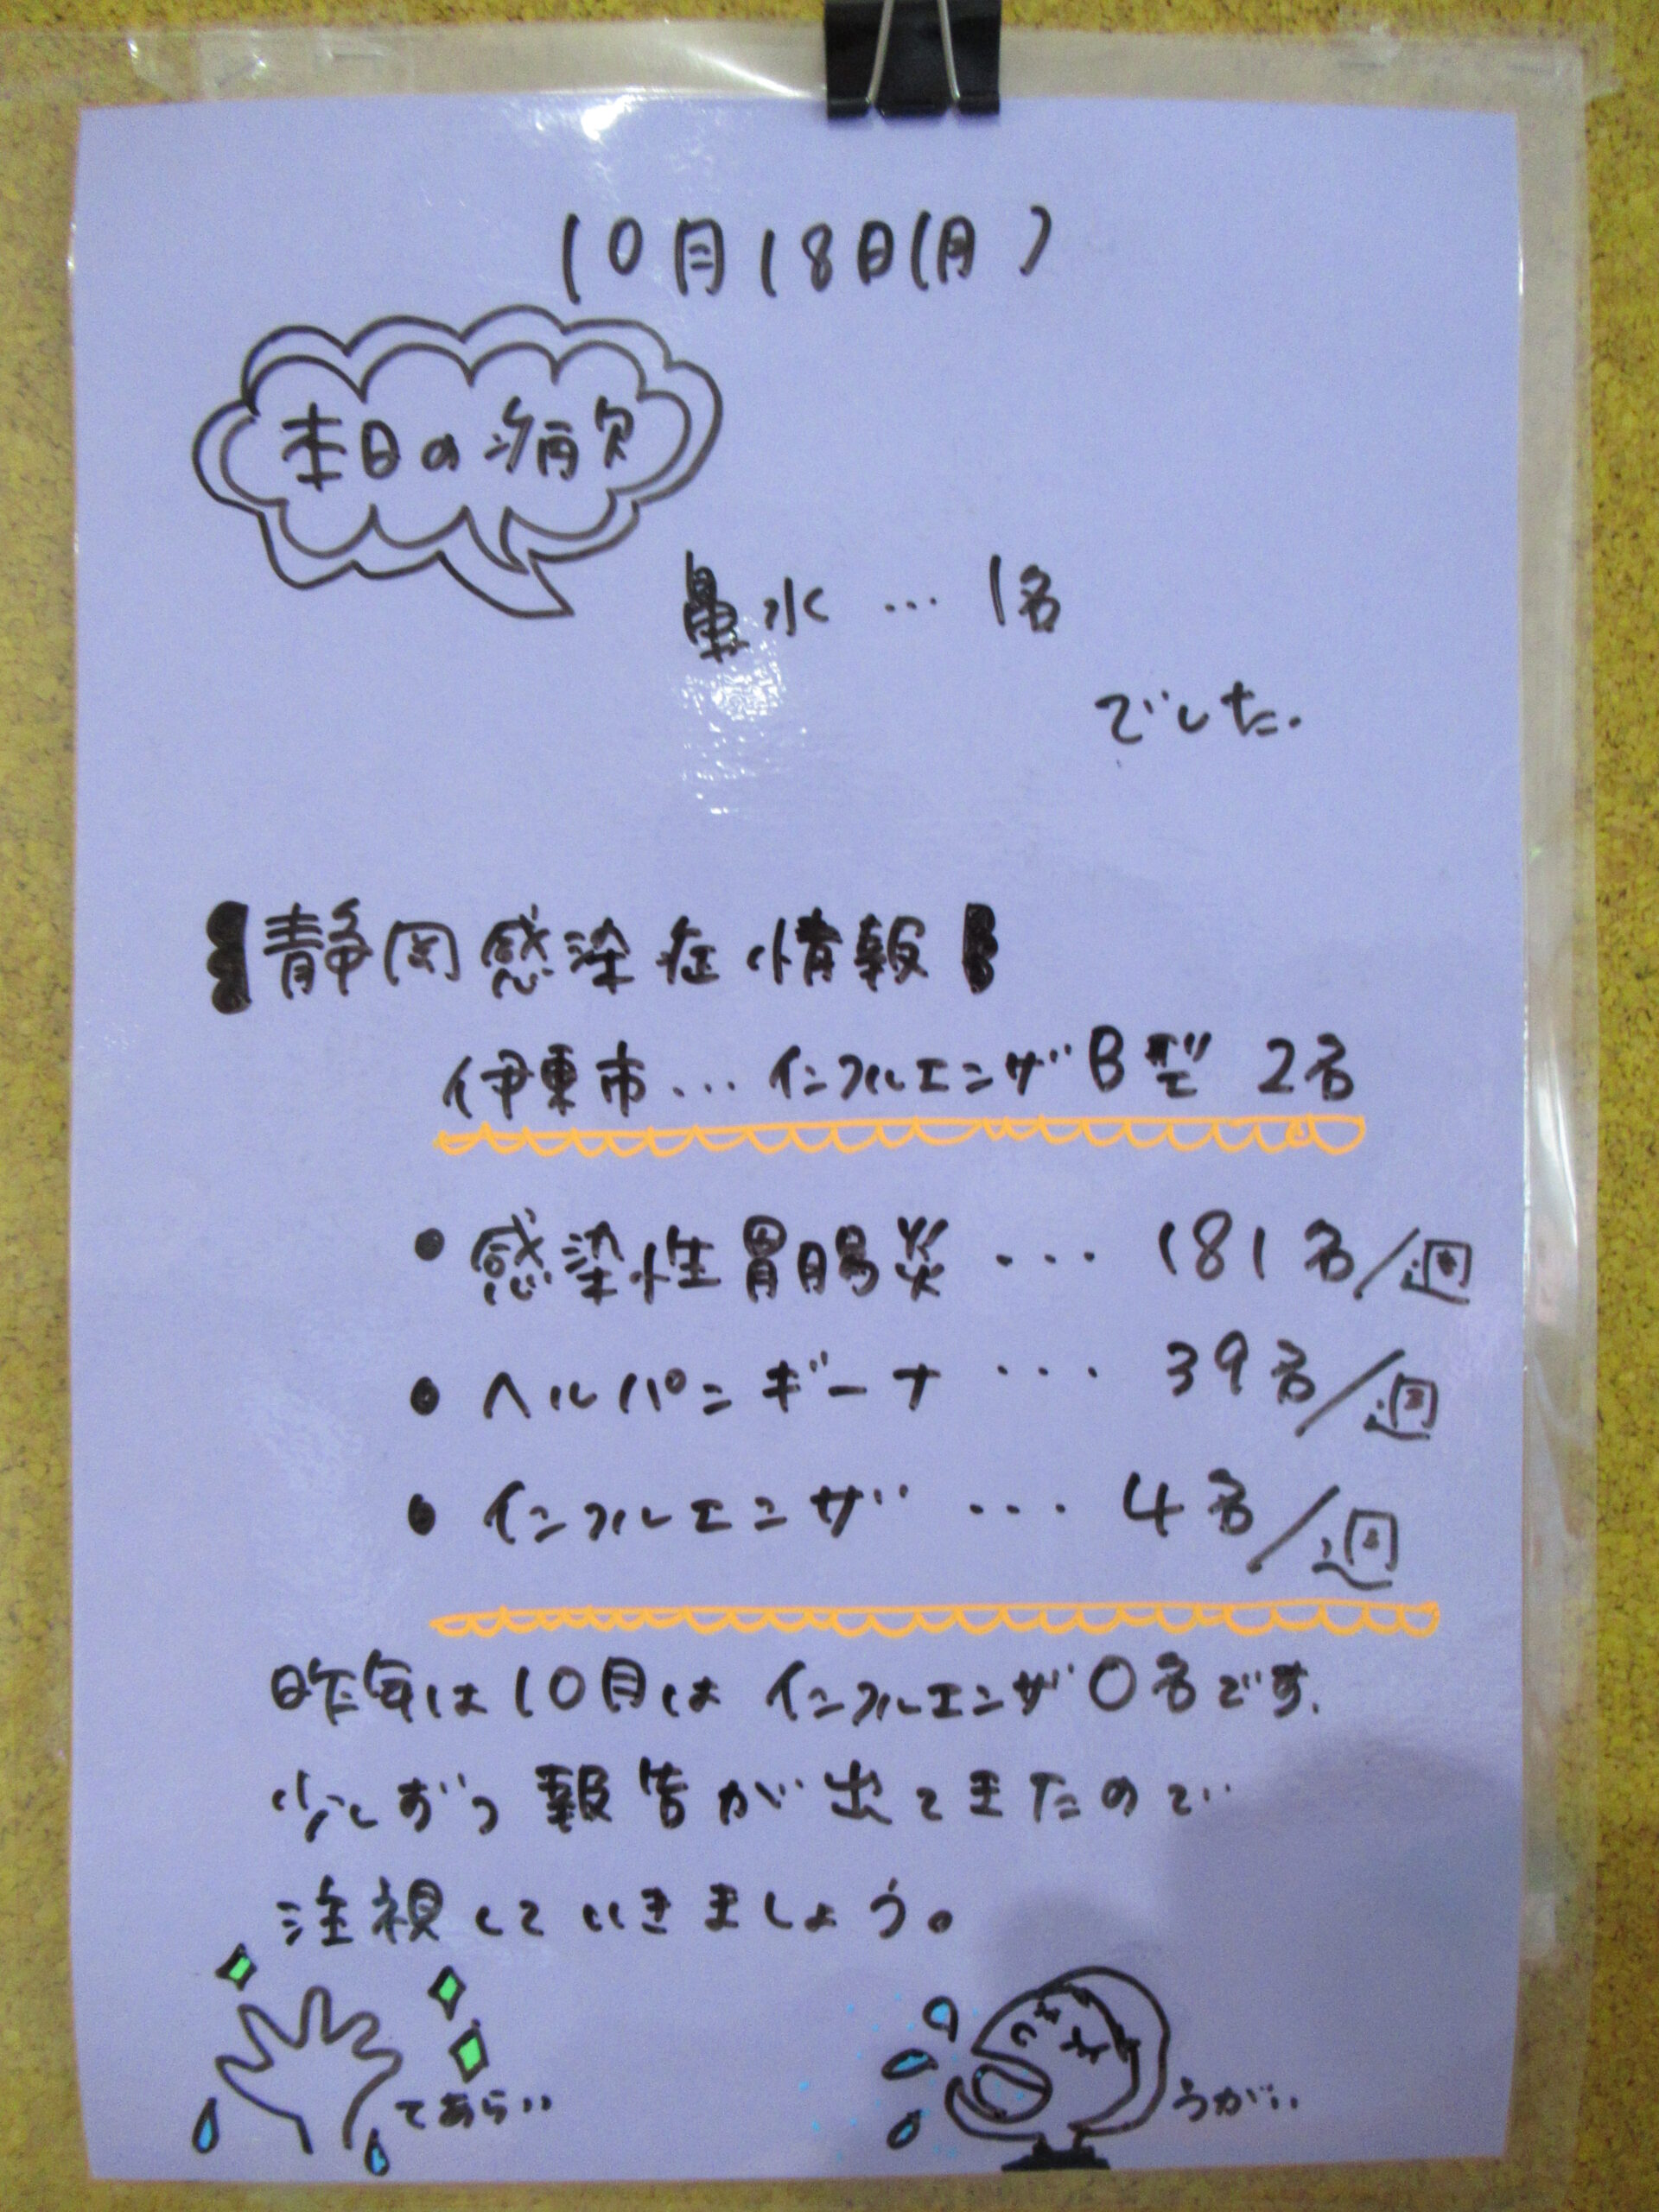 10月18日(月)
本日の病欠
鼻水 … 1名
でした.
【静岡感染症情報】
伊東市... インフルエンザB型 2名
・感染性胃腸炎 ... 181名/週
・ヘルパンギーナ ... 39名/週
・インフルエンザ ... 4名/週
昨年は10月はインフルエンザ0名です.
少しずつ報告が出てきたので
注視していきましょう。
てあらい
うがい